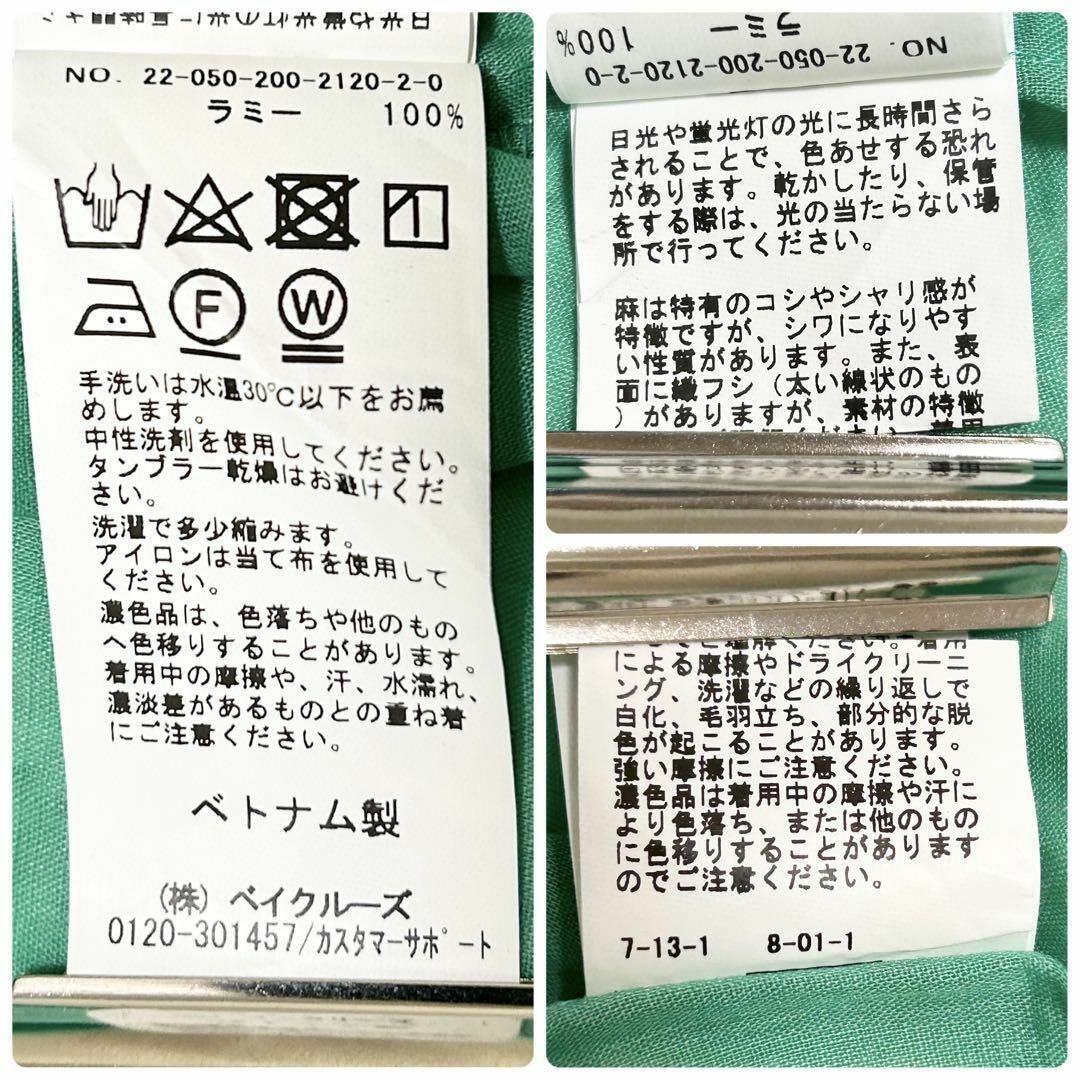 NO. 22-050-200-2120-2-0
ラミー 100%
F
W
手洗いは水温30℃以下をお薦
めします。
中性洗剤を使用してください。
タンブラー乾燥はお避けくだ
さい。
洗濯で多少縮みます。
アイロンは当て布を使用して
ください。
濃色品は、色落ちや他のもの
へ色移りすることがあります。
着用中の摩擦や、汗、水濡れ、
濃淡差があるものとの重ね着
にご注意ください。
ベトナム製
(株) ベイクルーズ
0120-301457/カスタマーサポート
NO. 22-050-200-2120-2-0
ラミー 100%
日光や蛍光灯の光に長時間さら
されることで、色あせする恐れ
があります。乾かしたり、保管
をする際は、光の当たらない場
所で行ってください。
麻は特有のコシやシャリ感が
特徴ですが、シワになりやす
い性質があります。また、表
面に織フシ(太い線状のもの
)がありますが、素材の特徴
ください。着用
による摩擦やドライクリーニ
ング、洗濯などの繰り返しで
白化、毛羽立ち、部分的な脱
色が起こることがあります。
強い摩擦にご注意ください。
濃色品は着用中の摩擦や汗に
より色落ち、または他のもの
に色移りすることがあります
のでご注意ください。
7-13-1 8-01-1